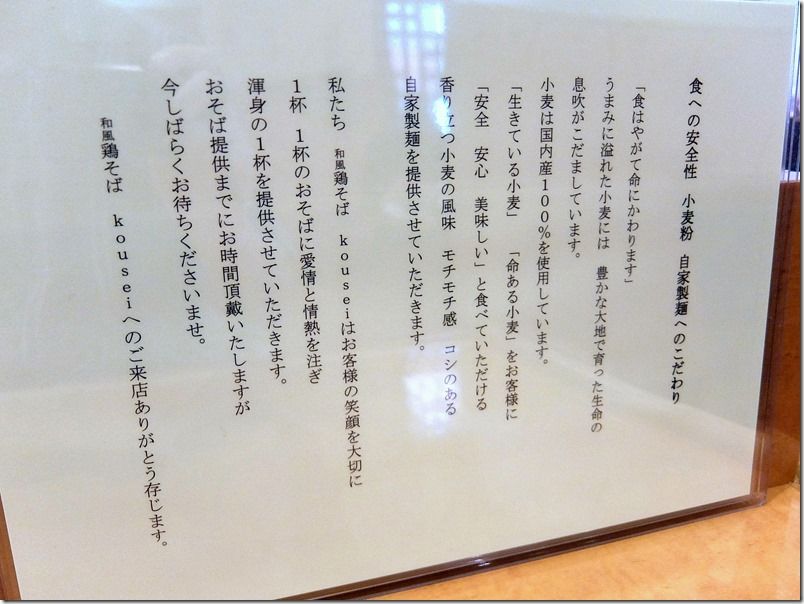 食への安全性　小麦粉　自家製麺へのこだわり
「食はやがて命にかわります」
うまみに溢れた小麦には　豊かな大地で育った生命の
息吹がこだましています。
小麦は国内産１００％を使用しています。
「生きている小麦」　「命ある小麦」をお客様に
「安全　安心　美味しい」と食べていただける
香り立つ小麦の風味　モチモチ感　コシのある
自家製麺を提供させていただきます。
私たち　和風鶏そば　ｋｏｕｓｅｉはお客様の笑顔を大切に
１杯　１杯のおそばに愛情と情熱を注ぎ
渾身の１杯を提供させていただきます。
おそば提供までにお時間頂戴いたしますが
今しばらくお待ちくださいませ。
和風鶏そば　ｋｏｕｓｅｉへのご来店ありがとう存じます。